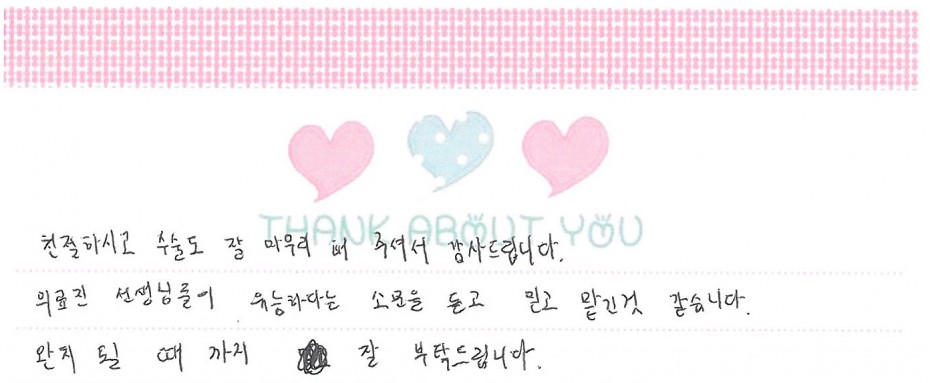 THANK ABOUT YOU
친절하시고 수술도 잘 마무리 해 주셔서 감사드립니다.
의료진 선생님들이 유능하다는 소문을 듣고 믿고 맡긴것 같습니다.
완치 될 때 까지 잘 부탁드립니다.